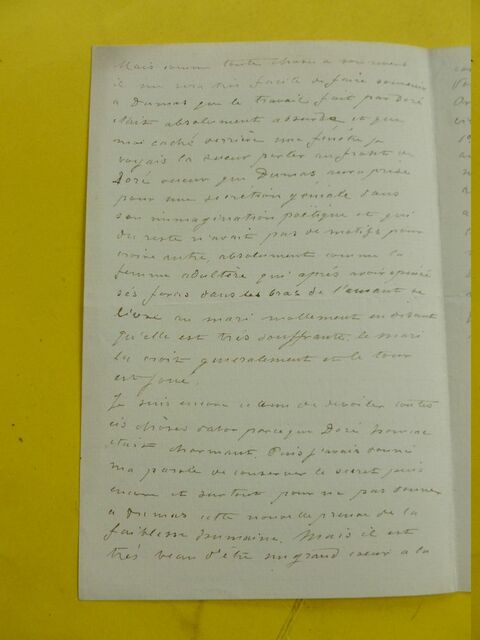 Mais comme toute chose a son revers
il me sera très facile de faire
à Dumas que le travail fait par Doré
était absolument absurde et que
moi caché derrière une fenêtre je
voyais la sueur perler au front de
Doré sueur que Dumas aura prise
pour une secrétion géniale dans
son immagination poëtique et qui
du reste n'avait pas de motifs pour
croire autre, absolument comme la
femme adultère qui après avoir épuisé
ses forces dans les bras de l'amant se
livre au mari mollement en disant
qu'elle est très souffrante, le mari
la croit généralement et le tour
est joué.
Je suis encore à de dévoiler toutes
ces chôses d'abor parceque Doré homme
était charmant. Puis j'avais donné
ma parole de conserver le secret puis
encore et surtout pour ne pas donner
à Dumas cette nouvelle preuve de la
faiblesse humaine. Mais il est
très beau d'être un grand cœur a la